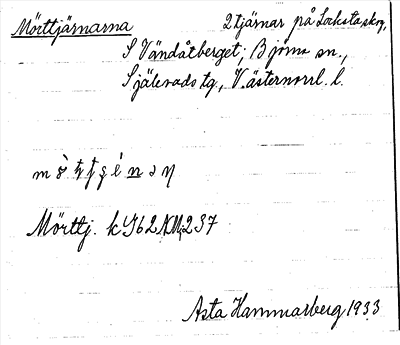 Mörttjärnarna 2 tjärnar på Locksta skog,
S Vändåtberget; Björna sn.,
Själevads tg, Västernorrl. l.
Mörttj. k
Asta Hammarberg 1933